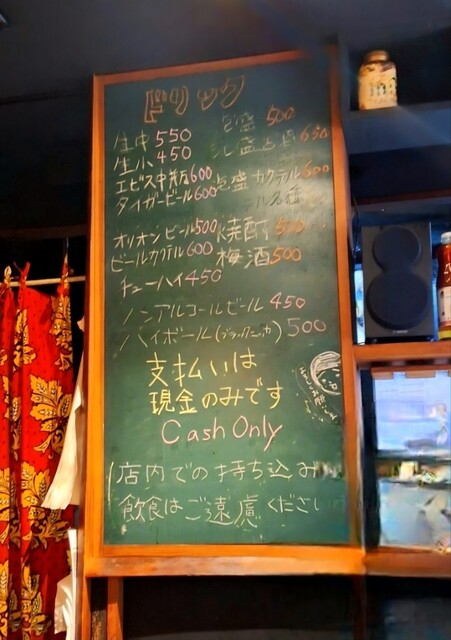 ドリンク
生中 550
生小 450
エビス中瓶 600
タイガービール 600
泡盛 500
650
泡盛カクテル 600
オリオンビール 500
ビールカクテル 600
チューハイ 450
焼酎 500
梅酒 500
ノンアルコールビール 450
ハイボール(ブラックニッカ) 500
支払いは
現金のみです
Cash Only
店内での持ち込み
飲食はご遠慮ください